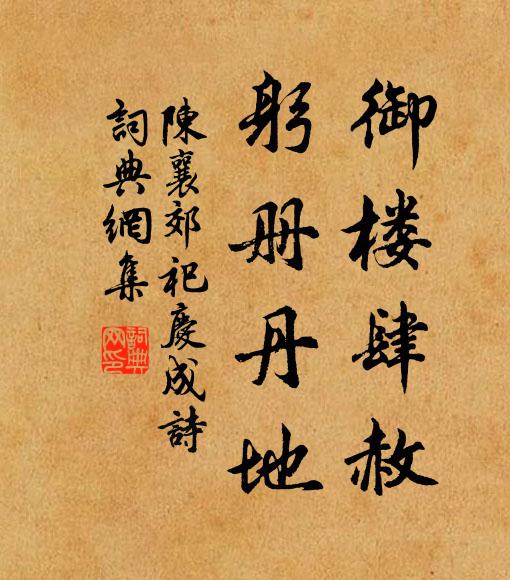 御楼肆赦
躬册丹地
陳襄郊祀慶成詩
詞典網集
詞典
网印